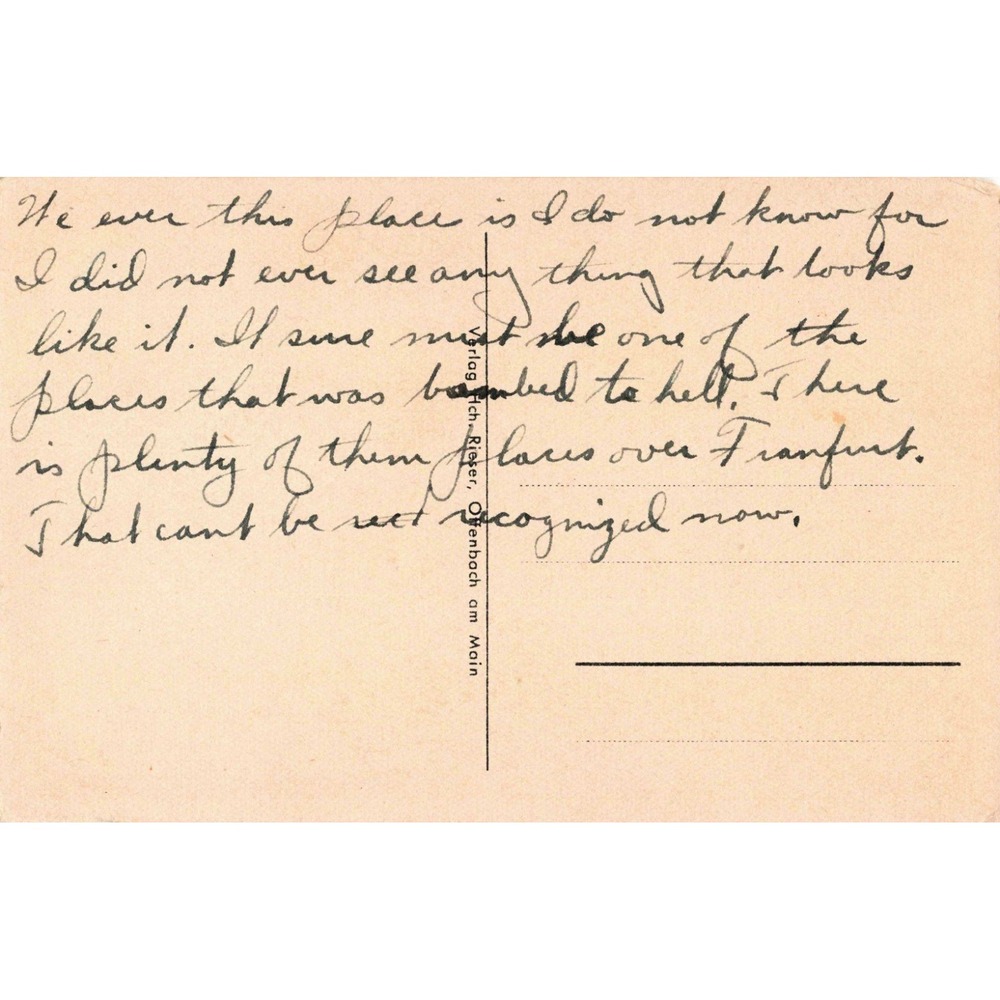 We ever this place is I do not know for
I did not ever see any thing that looks
like it. It sure must be one of the
places that was bombed to hell. There
is plenty of them places over Franfurt.
That cant be rect recognized now.
Verlag Hch. Rieser, Offenbach am Main